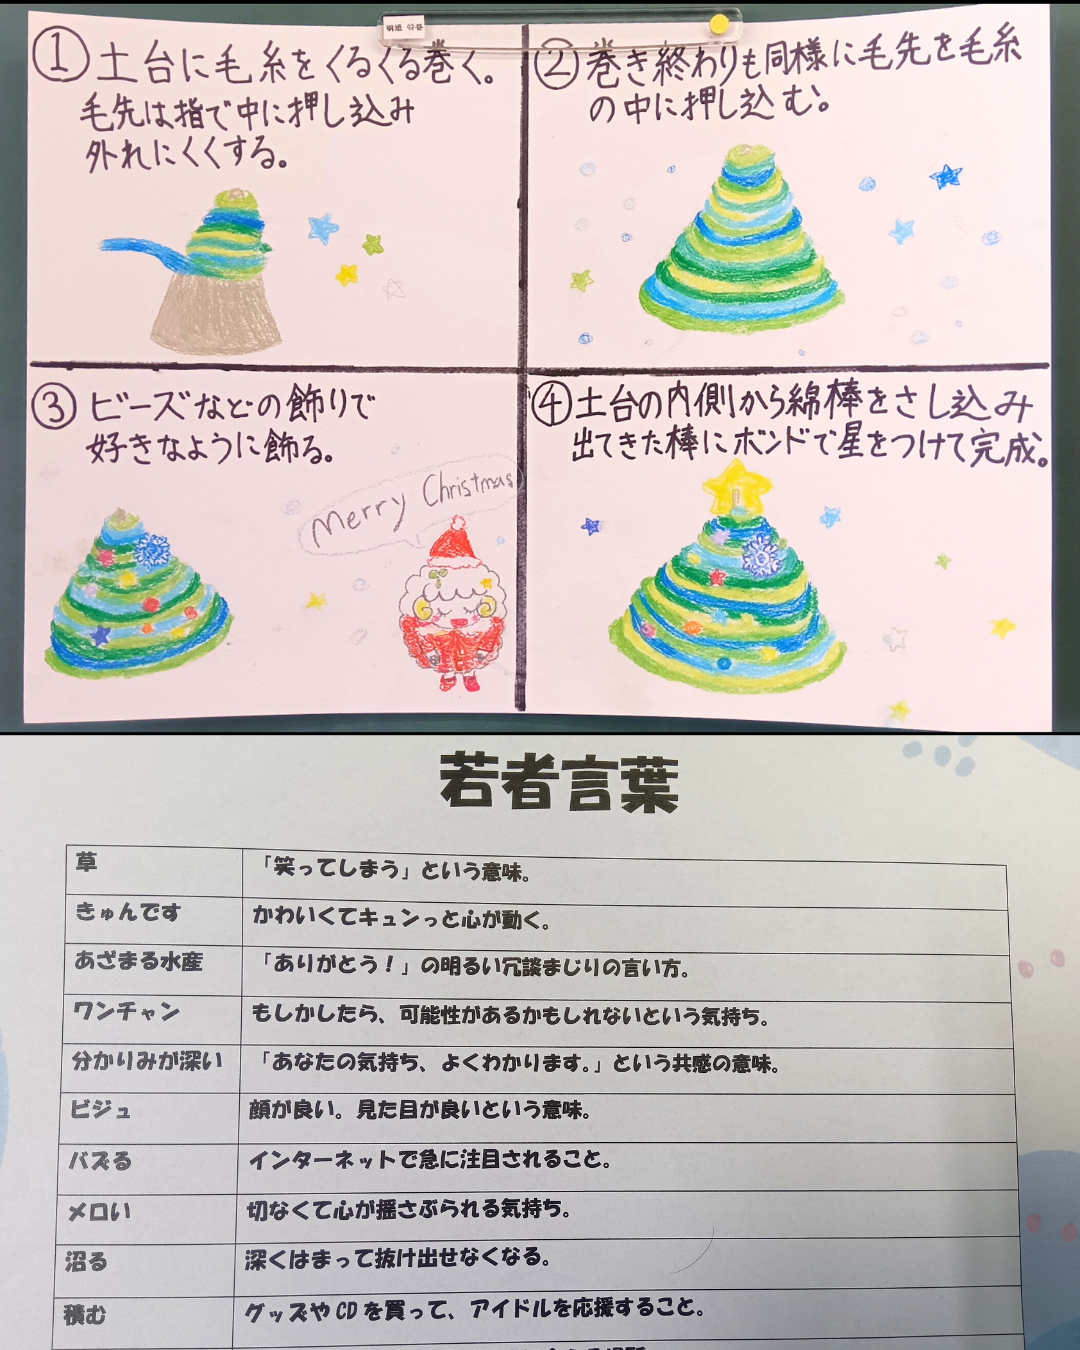 ① 土台に毛糸をくるくる巻く。
毛先は指で中に押し込み
外れにくくする。
② 巻き終わりも同様に毛先を毛糸
の中に押し込む。
③ ビーズなどの飾りで
好きなように飾る。
Merry Christmas
④ 土台の内側から綿棒をさし込み
出てきた棒にボンドで星をつけて完成。
若者言葉
草 「笑ってしまう」という意味。
きゅんです かわいくてキュンっと心が動く。
あざまる水産 「ありがとう！」の明るい冗談まじりの言い方。
ワンチャン もしかしたら、可能性があるかもしれないという気持ち。
分かりみが深い 「あなたの気持ち、よくわかります。」という共感の意味。
ビジュ 顔が良い。見た目が良いという意味。
バズる インターネットで急に注目されること。
メロい 切なくて心が揺さぶられる気持ち。
沼る 深くはまって抜け出せなくなる。
積む グッズやCDを買って、アイドルを応援すること。